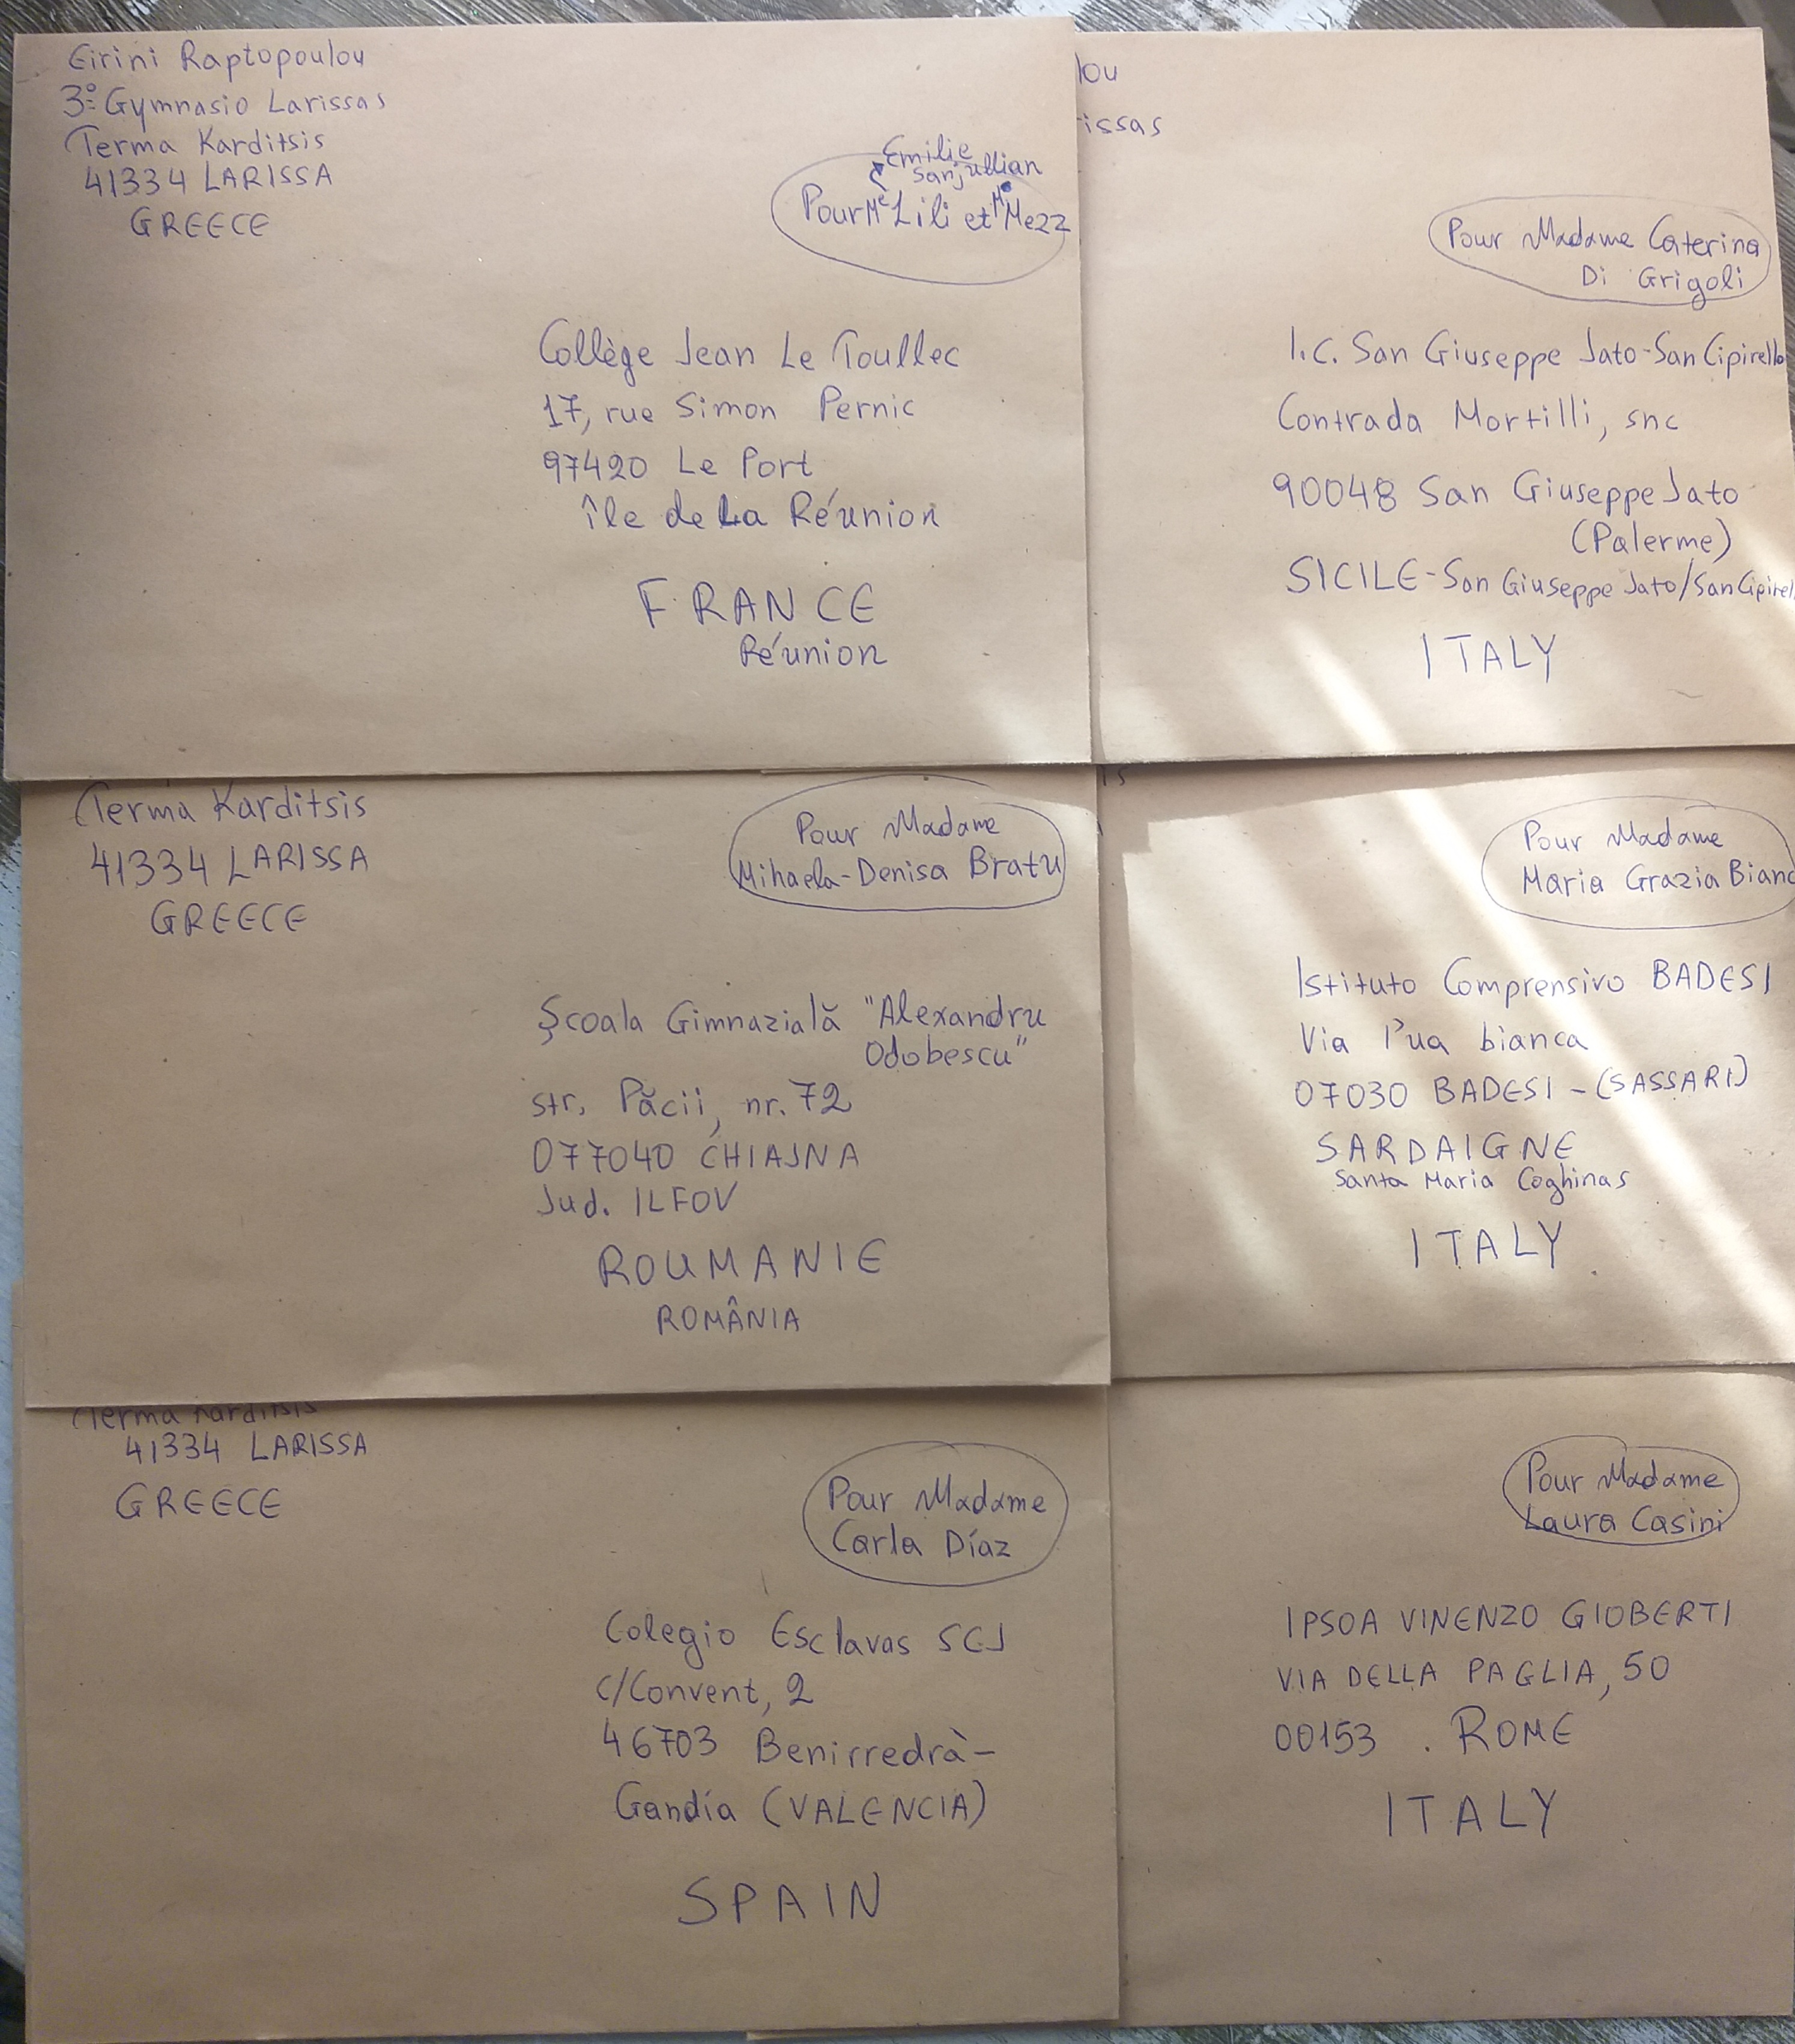 Eirini Raptopoulou
3º Gymnasio Larissas
Terma Karditsis
41334 LARISSA
GREECE
Emilie
Sanjullian
Pour Me Lili et Mr Mezz
Collège Jean Le Toullec
17, rue Simon Pernic
97420 Le Port
île de La Réunion
FRANCE
Réunion
lou
rissas
Pour Madame Caterina
Di Grigoli
I.C. San Giuseppe Jato-San Cipirello
Contrada Mortilli, snc
90048 San Giuseppe Jato
(Palerme)
SICILE-San Giuseppe Jato/San Cipirel
ITALY
Terma Karditsis
41334 LARISSA
GREECE
Pour Madame
Mihaela-Denisa Bratu
Școala Gimnazială "Alexandru
Odobescu"
str. Păcii, nr. 72
077040 CHIAJNA
Jud. ILFOV
ROUMANIE
ROMÂNIA
is
Pour Madame
Maria Grazia Bianc
Istituto Comprensivo BADESI
Via l'ua bianca
07030 BADESI - (SASSARI)
SARDAIGNE
Santa Maria Coghinas
ITALY
Terma Karditsis
41334 LARISSA
GREECE
Pour Madame
Carla Díaz
Colegio Esclavas SCJ
c/Convent, 2
46703 Benirredrà-
Gandía (VALENCIA)
SPAIN
Pour Madame
Laura Casini
IPSOA VINENZO GIOBERTI
VIA DELLA PAGLIA, 50
00153 . ROME
ITALY